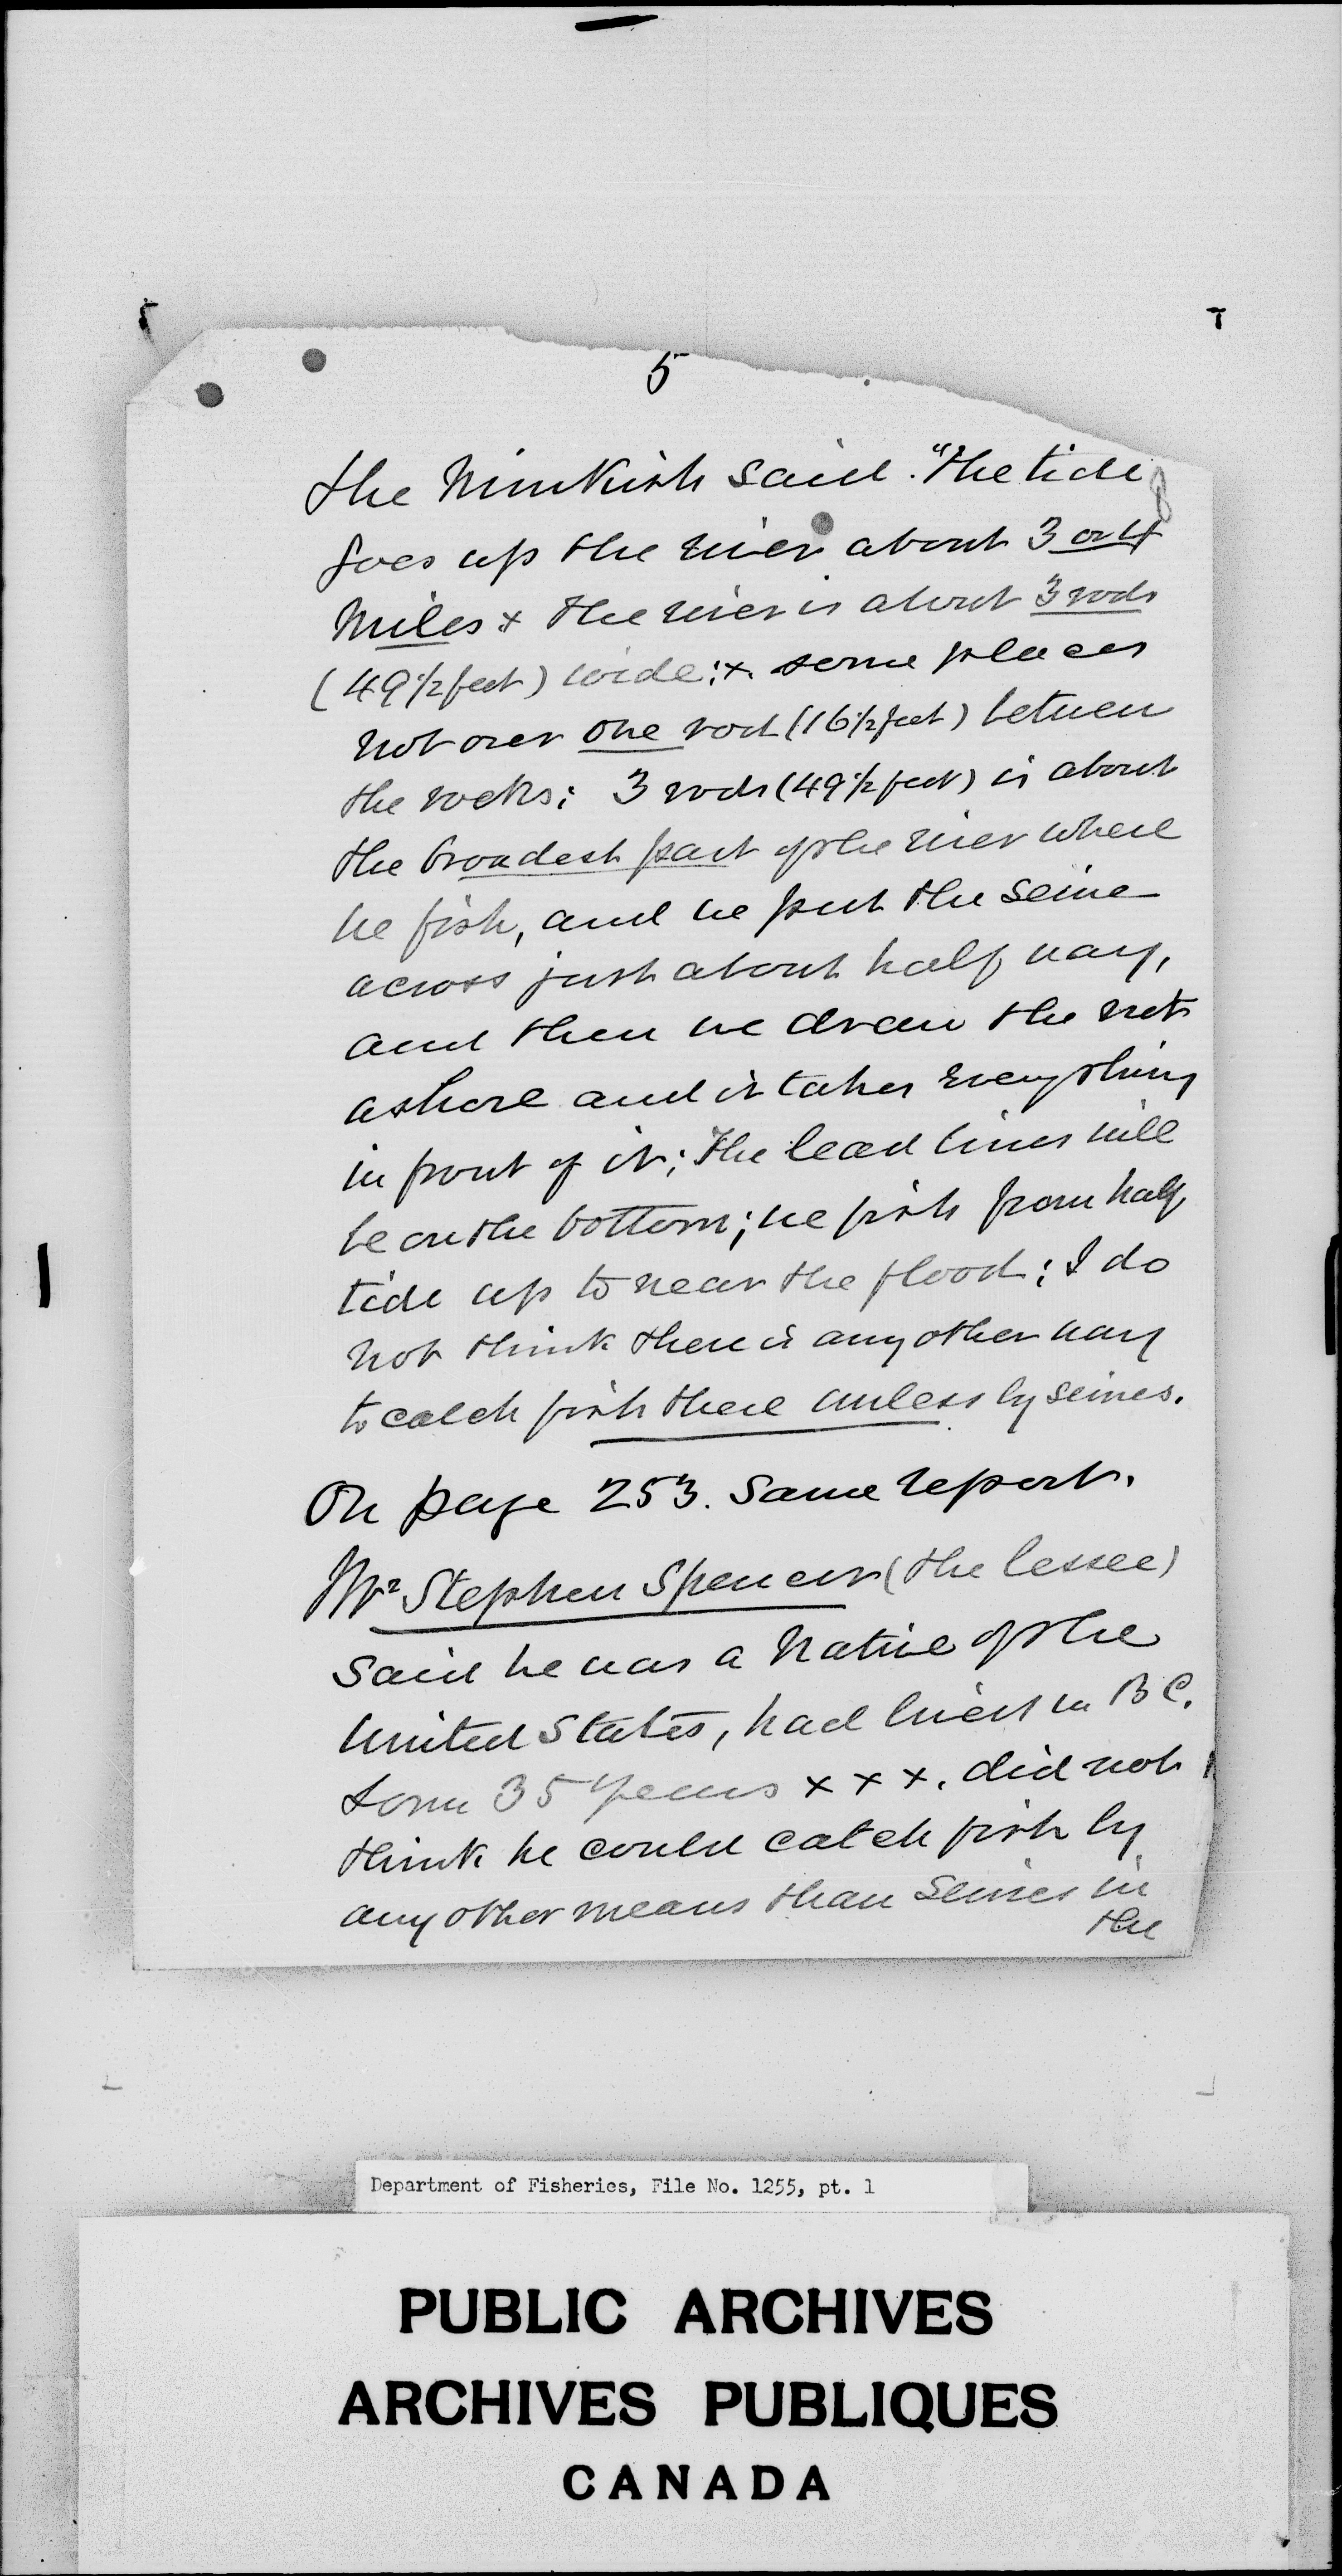 5
the Nimkish said. "the tide
goes up the river about 3 or 4
miles x the river is about 3 rods
(49 1/2 feet) wide; x. some places
not over one rod (16 1/2 feet) between
the rocks; 3 rods (49 1/2 feet) is about
the broadest part of the river where
we fish, and we put the seine
across just about half way,
and then we draw the net
ashore and it takes everything
in front of it; the lead lines will
be on the bottom; we fish from half
tide up to near the flood; I do
not think there is any other way
to catch fish there unless by seines.
On page 253. Same report.
Mr Stephen Spencer (the lessee)
said he was a native of the
United States, had lived in B C.
some 35 years x x x. did not
think he could catch fish by
any other means than seines in
the
Department of Fisheries, File No. 1255, pt. 1
PUBLIC ARCHIVES
ARCHIVES PUBLIQUES
CANADA